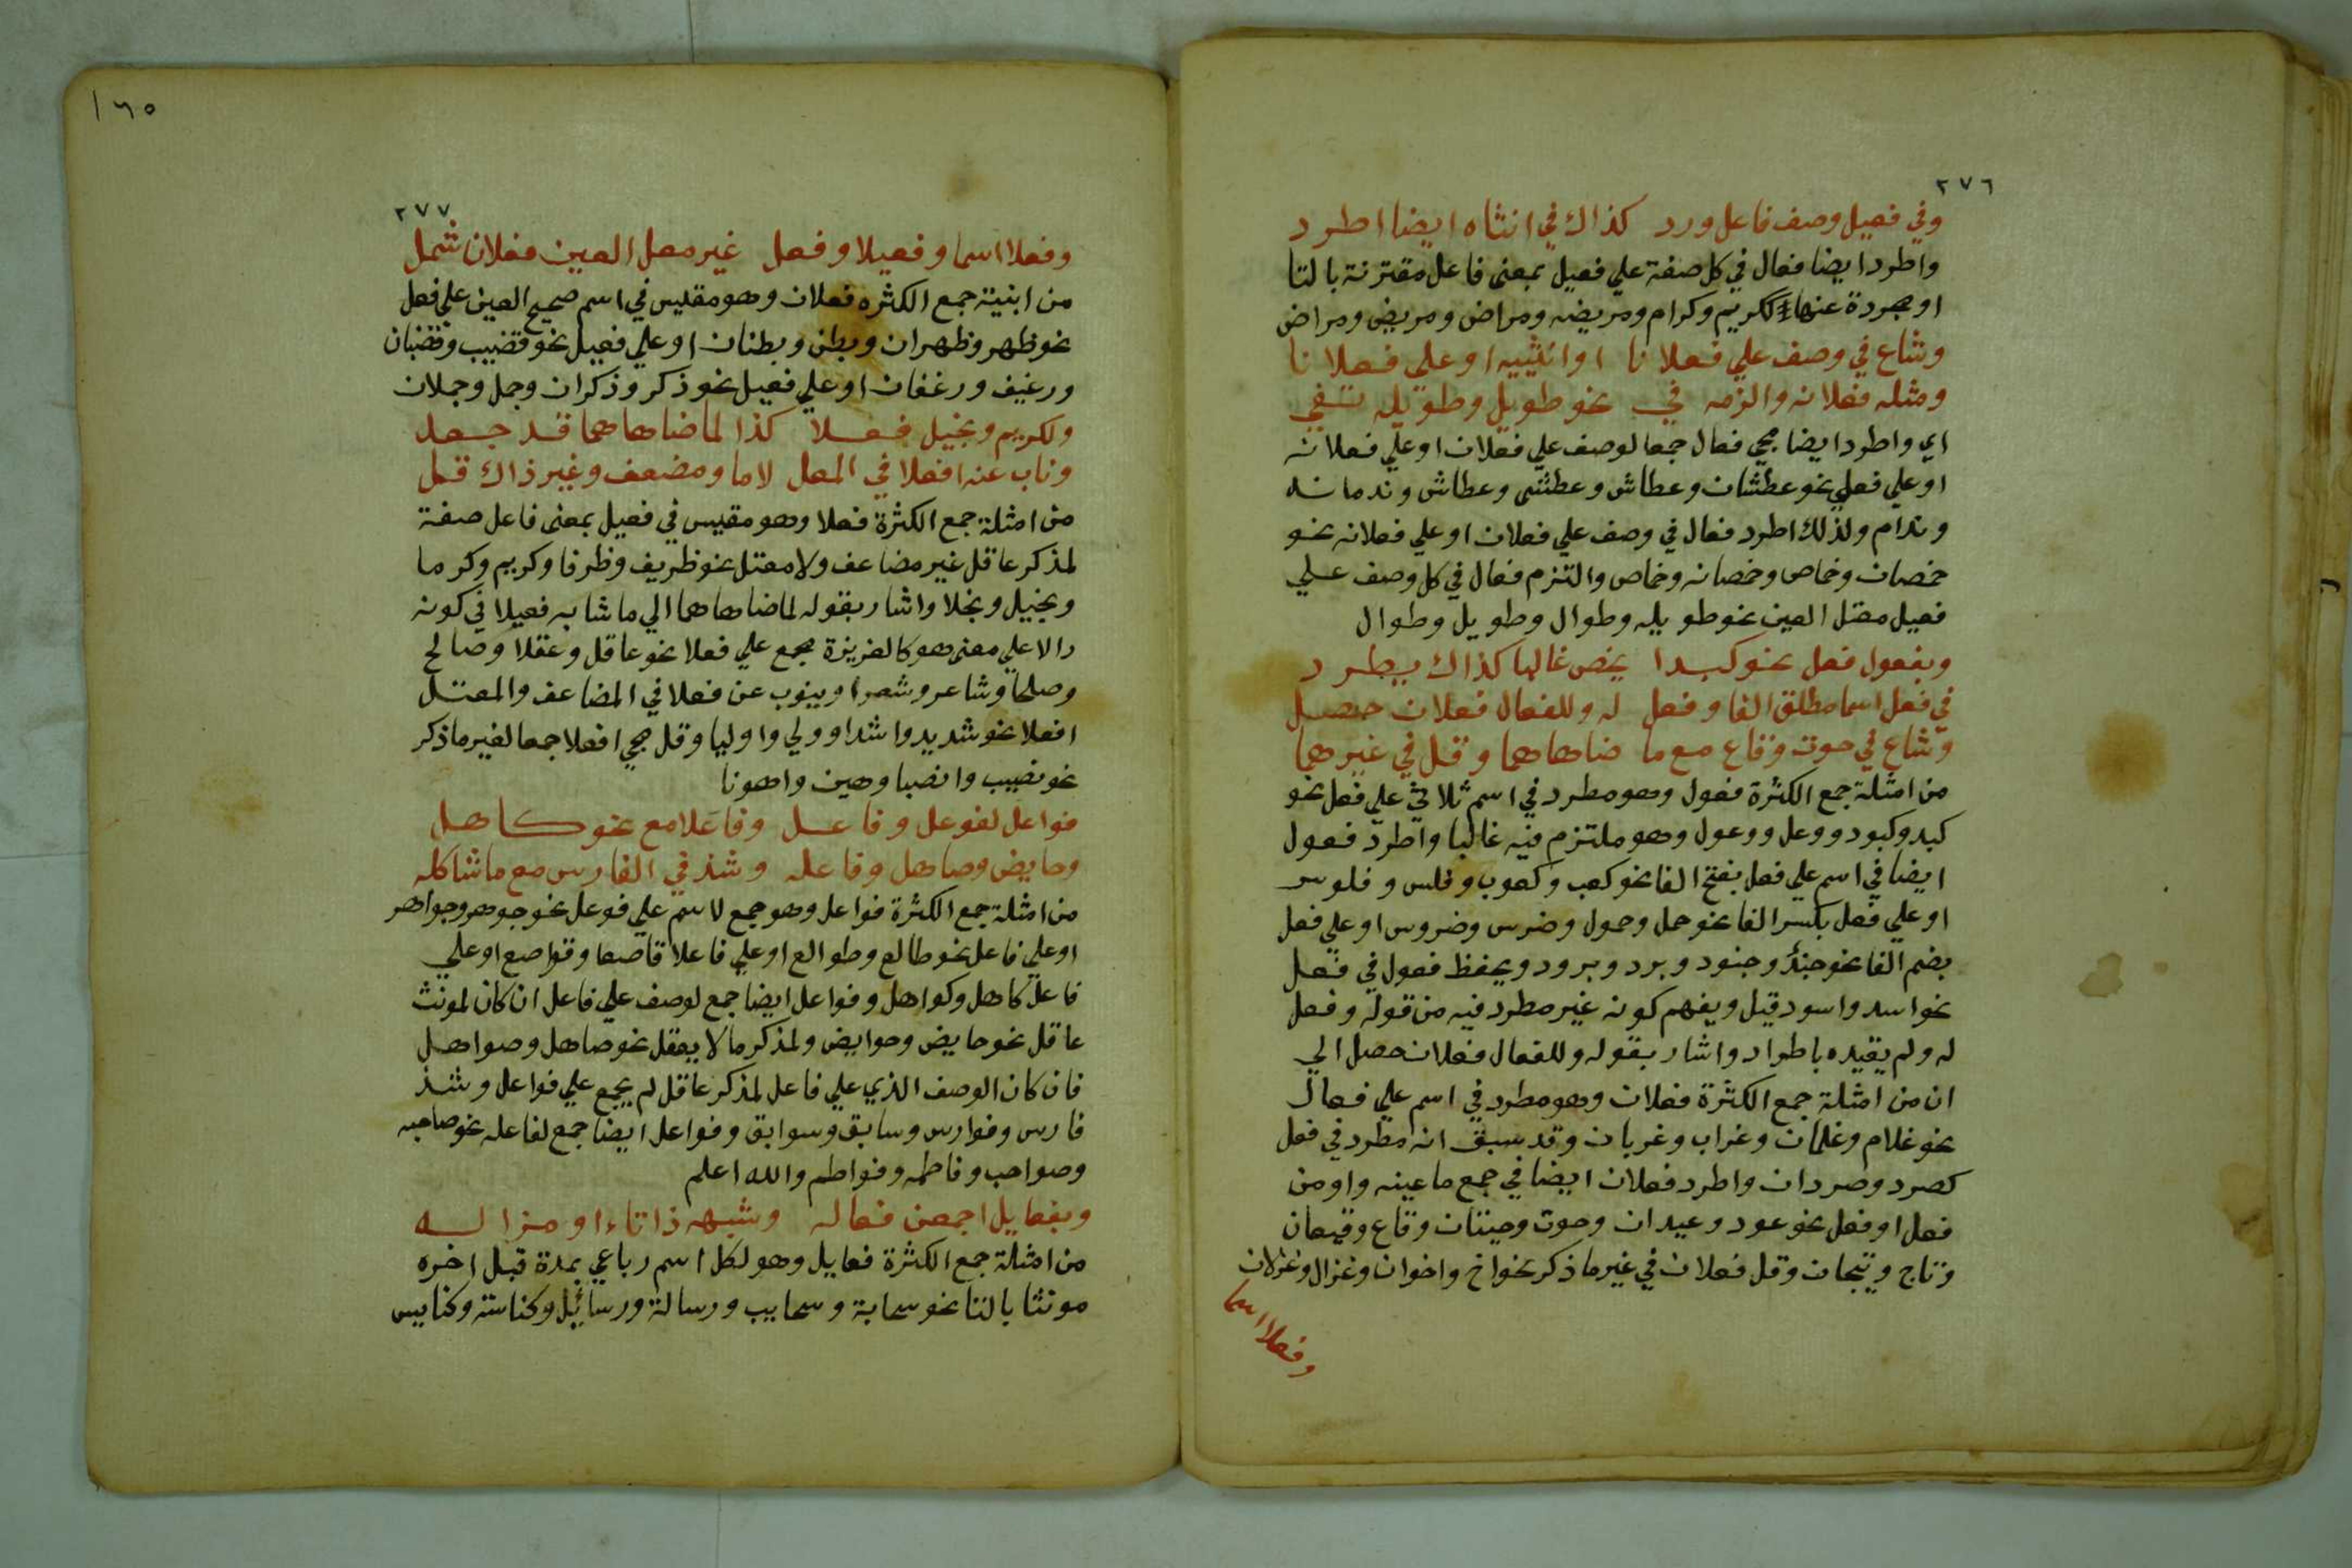 ٢٧٦
وفي فعيل وصف فاعل ورد كذاك في انثاه ايضا اطرد
واطرد ايضا فعال في كل صفة علي فعيل بمعنى فاعل مقترنة بالتا
او مجردة عنها ككريم وكرام ومريضه ومراض ومريض ومراض
وشاع في وصف علي فعلانا او انثييه او علي فعلانا
ومثله فعلانه والزمه في نحو طويل وطويله تفي
اي واطرد ايضا مجي فعال جمعا لوصف علي فعلان او علي فعلانه
او علي فعلي نحو عطشان وعطاش وعطشى وعطاش وندمانه
وندام ولذلك اطرد فعال في وصف علي فعلان او علي فعلانه نحو
خمصان وخماص وخمصانه وخماص والتزم فعال في كل وصف علي
فعيل معتل العين نحو طويله وطوال وطويل وطوال
وبفعول فعل نحو كبدا يخص غالبا كذاك يطرد
في فعل اسما مطلق الفا وفعل له وللفعال فعلان حصل
وشاع في حوت وقاع مع ما ضاهاهما وقل في غيرهما
من امثلة جمع الكثرة فعول وهو مطرد في اسم ثلاثي علي فعل نحو
كبد وكبود ووعل ووعول وهو ملتزم فيه غالبا واطرد فعول
ايضا في اسم علي فعل بفتح الفا نحو كعب وكعوب وفلس وفلوس
او علي فعل بكسر الفا نحو حمل وحمول وضرس وضروس او علي فعل
بضم الفا نحو جند وجنود وبرد وبرود ويحفظ فعول في فعل
نحو اسد واسود قيل ويفهم كونه غير مطرد فيه من قوله وفعل
له ولم يقيده باطراد واشار بقوله وللفعال فعلان حصل الي
ان من امثلة جمع الكثرة فعلان وهو مطرد في اسم علي فعال
نحو غلام وغلمان وغراب وغربان وقد سبق انه مطرد في فعل
كصرد وصردان واطرد فعلان ايضا في جمع ما عينه واو من
فعل او فعل نحو عود وعيدان وحوت وحيتان وقاع وقيعان
وتاج وتيجان وقل فعلان في غير ما ذكر نحو اخ واخوان وغزال وغزلان
وفعلا اسما
١٦٥
٢٧٧
وفعلا اسما وفعيلا وفعل غير معل العين فعلان شمل
من ابنية جمع الكثره فعلان وهو مقيس في اسم صحيح العين علي فعل
نحو ظهر وظهران وبطن وبطنان او علي فعيل نحو قضيب وقضبان
ورغيف ورغفان او علي فعيل نحو ذكر وذكران وجمل وجملان
ولكريم وبخيل فعلا كذا لما ضاهاهما قد جعل
وناب عنه افعلا في المعل لاما ومضعف وغير ذاك قل
من امثلة جمع الكثرة فعلا وهو مقيس في فعيل بمعنى فاعل صفة
لمذكر عاقل غير مضاعف ولا معتل نحو ظريف وظرفا وكريم وكرما
وبخيل وبخلا واشار بقوله لما ضاهاهما الي ما شابه فعيلا في كونه
دالا علي معنى هو كالغريزة يجمع علي فعلا نحو عاقل وعقلا وصالح
وصلحا وشاعر وشعرا وينوب عن فعلا في المضاعف والمعتل
افعلا نحو شديد واشدا وولي واوليا وقل مجي افعلا جمعا لغير ما ذكر
نحو نصيب وانصبا وهين واهونا
فواعل لفوعل وفاعل وفاعلا مع نحو كاهل
وحايض وصاهل وفاعله وشذ في الفارس مع ما شاكله
من امثلة جمع الكثرة فواعل وهو جمع لاسم علي فوعل نحو جوهر وجواهر
او علي فاعل نحو طالع وطوالع او علي فاعلا قاصعا وقواصع او علي
فاعل كاهل وكواهل وفواعل ايضا جمع لوصف علي فاعل ان كان لمونث
عاقل نحو حايض وحوايض ولمذكر ما لا يعقل نحو صاهل وصواهل
فان كان الوصف الذي علي فاعل لمذكر عاقل لم يجمع علي فواعل وشذ
فارس وفوارس وسابق وسوابق وفواعل ايضا جمع لفاعله نحو صاحبه
وصواحب وفاطمه وفواطم والله اعلم
وبفعايل اجمعن فعاله وشبهه ذا تاء او مزاله
من امثلة جمع الكثرة فعايل وهو لكل اسم رباعي بمدة قبل اخره
مونثا بالتا نحو سحابة وسحايب ورسالة ورسائل وكناسة وكنايس